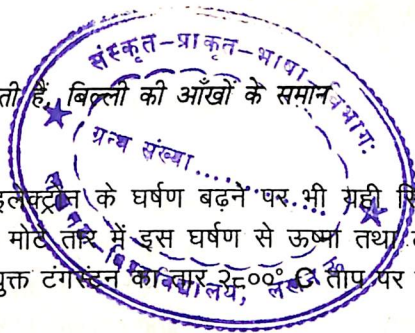 संस्कृत-प्राकृत-भाषा विभागः
ती हैं, बिल्ली की आँखों के समान
ग्रन्थ संख्या
इलेक्ट्रॉन के घर्षण बढ़ने पर भी यही
मोटे तार में इस घर्षण से ऊष्मा तथा
युक्त टंगस्टन का तार २८००° C ताप पर